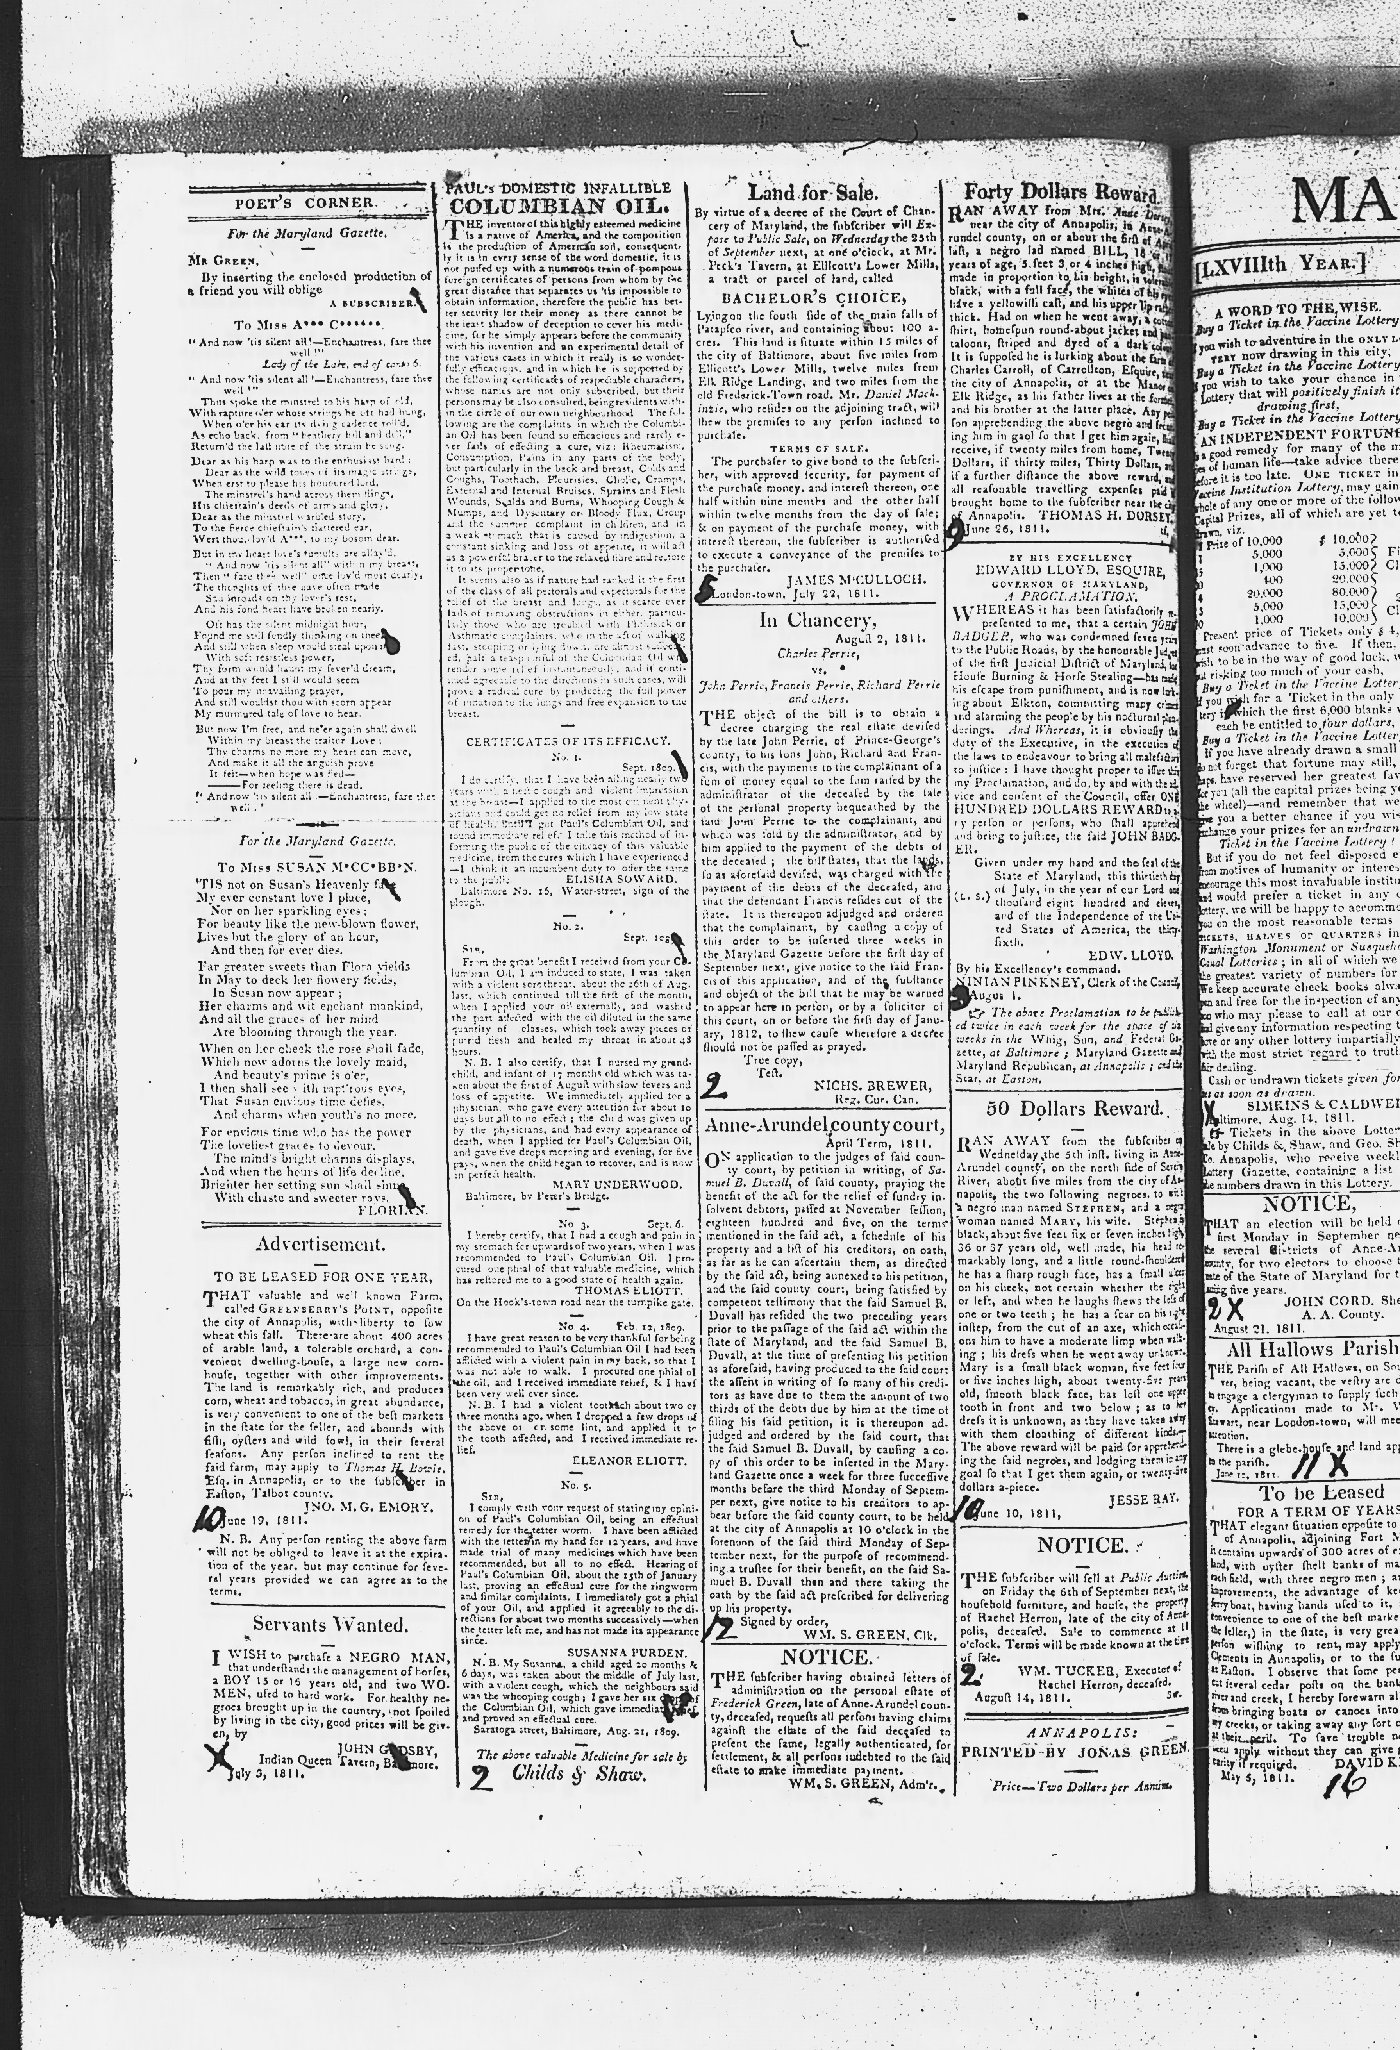 POET'S CORNER.
For the Maryland Gazette.
MR GREEN,
By inserting the enclosed production of
a friend you will oblige
A SUBSCRIBER.
To Miss A*** C******.
"And now 'tis silent all!—Enchantress, fare thee
well!"
Lady of the Lake, end of canto 6.
"And now 'tis silent all!—Enchantress, fare thee
well!"
Thus spoke the minstrel to his harp of old,
With rapture o'er whose strings he oft had hung,
When o'er his ear its dying cadence roll'd,
As echo back, from "heathery hill and dell,"
Return'd the last note of the strain he sung.
Dear as his harp was to the enthusiast bard;
Dear as the wild tones of its magic strings,
When erst to please his honoured lord,
The minstrel's hand across them flings,
His chieftain's deeds of arms and glory,
Dear as the minstrel warbled story,
To the fierce chieftain's flattered ear,
Wert thou, lov'd A***, to my bosom dear.
But in my heart love's tumults are allay'd,
"And now 'tis silent all" within my breast,
Then "fare thee well" once lov'd most dearly,
The thoughts of thee have often made
Sad inroads on thy lover's rest,
And his fond heart have broken nearly.
Oft has the silent midnight hour,
Found me still fondly thinking on thee
And still when sleep would steal upon
With soft resistless power,
Thy form would haunt my fever'd dream,
And at thy feet I still would seem
To pour my unavailing prayer,
And still wouldst thou with scorn appear
My murmured tale of love to hear.
But now I'm free, and ne'er again shall dwell
Within my breast the traitor Love;
Thy charms no more my heart can move,
And make it all the anguish prove
It felt—when hope was fled—
——For feeling there is dead.
"And now 'tis silent all—Enchantress, fare thee
well."
For the Maryland Gazette.
To Miss SUSAN M*CC*BB*N.
'TIS not on Susan's Heavenly
My ever constant love I place,
Nor on her sparkling eyes;
For beauty like the new-blown flower,
Lives but the glory of an hour,
And then for ever dies.
Far greater sweets than Flora yields
In May to deck her flowery fields,
In Susan now appear;
Her charms and wit enchant mankind,
And all the graces of her mind
Are blooming through the year.
When on her cheek the rose shall fade,
Which now adorns the lovely maid,
And beauty's prime is o'er,
I then shall see with rapt'rous eyes,
That Susan envious time defies,
And charms when youth's no more.
For envious time who has the power
The loveliest graces to devour,
The mind's bright charms displays,
And when the hours of life decline,
Brighter her setting sun shall shine
With chaste and sweeter rays.
FLORIAN.
Advertisement.
TO BE LEASED FOR ONE YEAR,
THAT valuable and well known Farm,
called GREENBERRY'S POINT, opposite
the city of Annapolis, with liberty to sow
wheat this fall. There are about 400 acres
of arable land, a tolerable orchard, a con-
venient dwelling-house, a large new corn-
house, together with other improvements.
The land is remarkably rich, and produces
corn, wheat and tobacco, in great abundance,
is very convenient to one of the best markets
in the state for the seller, and abounds with
fish, oysters and wild fowl, in their several
seasons. Any person inclined to rent the
said farm, may apply to Thomas H. Bowie,
Esq. in Annapolis, or to the subscriber in
Easton, Talbot county.
JNO. M. G. EMORY.
10 June 19, 1811.
N. B. Any person renting the above farm
will not be obliged to leave it at the expira-
tion of the year, but may continue for seve-
ral years provided we can agree as to the
terms.
Servants Wanted.
I WISH to purchase a NEGRO MAN,
that understands the management of horses,
a BOY 15 or 16 years old, and two WO-
MEN, used to hard work. For healthy ne-
groes brought up in the country, not spoiled
by living in the city, good prices will be giv-
en, by
JOHN G
Indian Queen Tavern, Baltimore.
X July 3, 1811.
PAUL'S DOMESTIC INFALLIBLE
COLUMBIAN OIL.
THE inventor of this highly esteemed medicine
is a native of America, and the composition
is the production of American soil, consequent-
ly it is in every sense of the word domestic, it is
not puffed up with a numerous train of pompous
foreign certificates of persons from whom by the
great distance that separates us 'tis impossible to
obtain information, therefore the public has bet-
ter security for their money as there cannot be
the least shadow of deception to cover his medi-
cine, for he simply appears before the community
with his invention and an experimental detail of
the various cases in which it really is so wonder-
fully efficacious, and in which he is supported by
the following certificates of respectable characters,
whose names are not only subscribed, but their
persons may be also consulted, being residents with-
in the circle of our own neighbourhood. The fol-
lowing are the complaints in which the Columbi-
an Oil has been found so efficacious and rarely e-
ver fails of effecting a cure, viz: Rheumatism,
Consumption, Pains in any parts of the body,
but particularly in the back and breast, Colds and
Coughs, Toothach, Pleurisies, Cholic, Cramps,
External and Internal Bruises, Sprains and Flesh
Wounds, Scalds and Burns, Whooping Cough &
Mumps, and Dysentary or Bloody Flux, Croup
and the summer complaint in children, and in
a weak stomach that is caused by indigestion, a
constant sinking and loss of appetite, it will act
as a powerful bracer to the relaxed fibre and restore
it to its proper tone.
It seems also as if nature had ranked it the first
of the class of all pectorals and expectorals for the
relief of the breast and lungs, as it scarce ever
fails of removing obstructions in either, particu-
larly those who are troubled with Phthisick or
Asthmatic complaints, who in the act of walking
fast, stooping or lying down, are almost suffocat-
ed, half a teaspoonful of the Columbian Oil will
render some relief instantaneously, and if conti-
nued agreeable to the directions in such cases, will
prove a radical cure by producing the full power
of rotation to the lungs and free expansion to the
breast.
CERTIFICATES OF ITS EFFICACY.
No. 1.
Sept. 1809.
I do certify, that I have been ailing nearly two
years with a hectic cough and violent impression
at the breast—I applied to the most eminent phy-
sicians and could get no relief from my low state
of health. Until I got Paul's Columbian Oil, and
found immediate relief. I take this method of in-
forming the public of the efficacy of this valuable
medicine, from the cures which I have experienced
—I think it an incumbent duty to offer the same
to the public. ELISHA SOWARD.
Baltimore No. 16, Water-street, sign of the
plough.
No. 2.
Sept.
SIR,
From the great benefit I received from your Co-
lumbian Oil, I am induced to state, I was taken
with a violent sore throat, about the 26th of Aug.
last, which continued till the first of the month,
when I applied your oil externally, and washed
the part affected with the oil diluted in the same
quantity of classes, which took away pieces of
putrid flesh and healed my throat in about 48
hours.
N. B. I also certify, that I nursed my grand-
child, and infant of 17 months old which was ta-
ken about the first of August with slow fevers and
loss of appetite. We immediately applied for a
physician, who gave every attention for about 10
days but all to no effect; the child was given up
by the physicians, and had every appearance of
death, when I applied for Paul's Columbian Oil,
and gave five drops morning and evening, for five
days, when the child began to recover, and is now
in perfect health.
MARY UNDERWOOD.
Baltimore, by Peter's Bridge.
No 3. Sept. 6.
I hereby certify, that I had a cough and pain in
my stomach for upwards of two years, when I was
recommended to Paul's Columbian Oil. I pro-
cured one phial of that valuable medicine, which
has restored me to a good state of health again.
THOMAS ELIOTT.
On the Hook's-town road near the turnpike gate.
No 4. Feb. 12, 1809.
I have great reason to be very thankful for being
recommended to Paul's Columbian Oil I had been
afflicted with a violent pain in my back, so that I
was not able to walk. I procured one phial of
the oil, and I received immediate relief, & I have
been very well ever since.
N. B. I had a violent toothach about two or
three months ago, when I dropped a few drops of
the above oil on some lint, and applied it to
the tooth affected, and I received immediate re-
lief.
ELEANOR ELIOTT.
No. 5.
SIR,
I comply with your request of stating my opini-
on of Paul's Columbian Oil, being an effectual
remedy for the tetter worm. I have been afflicted
with the tetter in my hand for 12 years, and have
made trial of many medicines which have been
recommended, but all to no effect. Hearing of
Paul's Columbian Oil, about the 15th of January
last, proving an effectual cure for the ringworm
and similar complaints, I immediately got a phial
of your Oil, and applied it agreeably to the di-
rections for about two months successively—when
the tetter left me, and has not made its appearance
since.
SUSANNA PURDEN.
N. B. My Susanna, a child aged 20 months &
6 days, was taken about the middle of July last,
with a violent cough, which the neighbours said
was the whooping cough; I gave her six drops of
the Columbian Oil, which gave immediate relief,
and proved an effectual cure.
Saratoga street, Baltimore, Aug. 21, 1809.
The above valuable Medicine for sale by
2 Childs & Shaw.
Land for Sale.
By virtue of a decree of the Court of Chan-
cery of Maryland, the subscriber will Ex-
pose to Public Sale, on Wednesday the 25th
of September next, at one o'clock, at Mr.
Peck's Tavern, at Ellicott's Lower Mills,
a tract or parcel of land, called
BACHELOR'S CHOICE,
Lying on the south side of the main falls of
Patapsco river, and containing about 100 a-
cres. This land is situate within 15 miles of
the city of Baltimore, about five miles from
Ellicott's Lower Mills, twelve miles from
Elk Ridge Landing, and two miles from the
old Frederick-Town road. Mr. Daniel Mack-
inzie, who resides on the adjoining tract, will
shew the premises to any person inclined to
purchase.
TERMS OF SALE.
The purchaser to give bond to the subscri-
ber, with approved security, for payment of
the purchase money, and interest thereon, one
half within nine months and the other half
within twelve months from the day of sale;
& on payment of the purchase money, with
interest thereon, the subscriber is authorised
to execute a conveyance of the premises to
the purchaser.
JAMES M'CULLOCH.
5 London-town, July 22, 1811.
In Chancery,
August 2, 1811.
Charles Perrie,
vs.
John Perrie, Francis Perrie, Richard Perrie
and others.
THE object of the bill is to obtain a
decree charging the real estate devised
by the late John Perrie, of Prince-George's
county, to his sons John, Richard and Fran-
cis, with the payments to the complainant of a
sum of money equal to the sum raised by the
administrator of the deceased by the sale
of the personal property bequeathed by the
said John Perrie to the complainant, and
which was sold by the administrator, and by
him applied to the payment of the debts of
the deceased; the bill states, that the lands,
so as aforesaid devised, was charged with the
payment of the debts of the deceased, and
that the defendant Francis resides out of the
state. It is thereupon adjudged and ordered
that the complainant, by causing a copy of
this order to be inserted three weeks in
the Maryland Gazette before the first day of
September next, give notice to the said Fran-
cis of this application, and of the substance
and object of the bill that he may be warned
to appear here in person, or by a solicitor of
this court, on or before the first day of Janu-
ary, 1812, to shew cause wherefore a decree
should not be passed as prayed.
True copy,
Test.
2 NICHS. BREWER,
Reg. Cur. Can.
Anne-Arundel county court,
April Term, 1811.
ON application to the judges of said coun-
ty court, by petition in writing, of Sa-
muel B. Duvall, of said county, praying the
benefit of the act for the relief of sundry in-
solvent debtors, passed at November session,
eighteen hundred and five, on the terms
mentioned in the said act, a schedule of his
property and a list of his creditors, on oath,
as far as he can ascertain them, as directed
by the said act, being annexed to his petition,
and the said county court, being satisfied by
competent testimony that the said Samuel B.
Duvall has resided the two preceding years
prior to the passage of the said act within the
state of Maryland, and the said Samuel B.
Duvall, at the time of presenting his petition
as aforesaid, having produced to the said court
the assent in writing of so many of his credi-
tors as have due to them the amount of two
thirds of the debts due by him at the time of
filing his said petition, it is thereupon ad-
judged and ordered by the said court, that
the said Samuel B. Duvall, by causing a co-
py of this order to be inserted in the Mary-
land Gazette once a week for three successive
months before the third Monday of Septem-
per next, give notice to his creditors to ap-
bear before the said county court, to be held
at the city of Annapolis at 10 o'clock in the
forenoon of the said third Monday of Sep-
tember next, for the purpose of recommend-
ing a trustee for their benefit, on the said Sa-
muel B. Duvall then and there taking the
oath by the said act prescribed for delivering
up his property.
12 Signed by order,
WM. S. GREEN, Clk.
NOTICE.
THE subscriber having obtained letters of
administration on the personal estate of
Frederick Green, late of Anne-Arundel coun-
ty, deceased, requests all persons having claims
against the estate of the said deceased to
present the same, legally authenticated, for
settlement, & all persons indebted to the said
estate to make immediate payment.
WM. S. GREEN, Adm'r.
Forty Dollars Reward.
RAN AWAY from Mrs. Anne Dorsey,
near the city of Annapolis, in Anne-A
rundel county, on or about the first of
last, a negro lad named BILL, 18 or
years of age, 5 feet 3 or 4 inches high,
made in proportion to his height, is
black, with a full face, the whites of his
have a yellowish cast, and his upper lip
thick. Had on when he went away, a
shirt, homespun round-about jacket and
taloons, striped and dyed of a dark
It is supposed he is lurking about the farm
Charles Carroll, of Carrollton, Esquire,
the city of Annapolis, or at the Manor
Elk Ridge, as his father lives at the former
and his brother at the latter place. Any per-
son apprehending the above negro and secur-
ing him in gaol so that I get him again, shall
receive, if twenty miles from home, Twenty
Dollars, if thirty miles, Thirty Dollars, and
if a further distance the above reward, and
all reasonable travelling expenses paid if
brought home to the subscriber near the city
of Annapolis. THOMAS H. DORSEY.
9 June 26, 1811.
BY HIS EXCELLENCY
EDWARD LLOYD, ESQUIRE,
GOVERNOR OF MARYLAND,
A PROCLAMATION.
WHEREAS it has been satisfactorily re-
presented to me, that a certain JOHN
BADGER, who was condemned seven years
to the Public Roads, by the honourable Judges
of the first Judicial District of Maryland, for
House Burning & Horse Stealing—has made
his escape from punishment, and is now lurk-
ing about Elkton, committing many crimes
and alarming the people by his nocturnal plun-
derings. And Whereas, it is obviously the
duty of the Executive, in the execution of
the laws to endeavour to bring all malefactors
to justice: I have thought proper to issue this
my Proclamation, and do, by and with the ad-
vice and consent of the Council, offer ONE
HUNDRED DOLLARS REWARD to a-
ry person or persons, who shall apprehend
and bring to justice, the said JOHN BADG-
ER.
Given under my hand and the seal of the
State of Maryland, this thirtieth day
of July, in the year of our Lord one
(L. S.) thousand eight hundred and eleven,
and of the Independence of the Uni-
ted States of America, the thirty-
sixth.
EDW. LLOYD.
By his Excellency's command.
NINIAN PINKNEY, Clerk of the Council,
August 1.
☞ The above Proclamation to be publish-
ed twice in each week for the space of six
weeks in the Whig, Sun, and Federal Ga-
zette, at Baltimore; Maryland Gazette and
Maryland Republican, at Annapolis; and the
Star, at Easton.
50 Dollars Reward.
RAN AWAY from the subscriber on
Wednesday the 5th inst. living in Anne-
Arundel county, on the north side of Severn
River, about five miles from the city of An-
napolis, the two following negroes, to wit:
a negro man named STEPHEN, and a negro
woman named MARY, his wife. Stephen is
black, about five feet six or seven inches high,
36 or 37 years old, well made, his head re-
markably long, and a little round-shouldered
he has a sharp rough face, has a small scar
on his cheek, not certain whether the right
or left, and when he laughs shews the loss of
one or two teeth; he has a scar on his right
instep, from the cut of an axe, which occasi-
ons him to have a moderate limp when walk-
ing; his dress when he went away unknown.
Mary is a small black woman, five feet four
or five inches high, about twenty-five years
old, smooth black face, has lost one upper
tooth in front and two below; as to her
dress it is unknown, as they have taken away
with them cloathing of different kinds.—
The above reward will be paid for apprehend-
ing the said negroes, and lodging them in any
goal so that I get them again, or twenty-five
dollars a-piece.
JESSE RAY.
10 June 10, 1811,
NOTICE.
THE subscriber will sell at Public Auction,
on Friday the 6th of September next, the
household furniture, and house, the property
of Rachel Herron, late of the city of Anna-
polis, deceased. Sale to commence at 11
o'clock. Terms will be made known at the time
of sale.
2. WM. TUCKER, Executor of
Rachel Herron, deceased.
August 14, 1811. 3w.
ANNAPOLIS:
PRINTED BY JONAS GREEN.
Price—Two Dollars per Annum.
MA
[LXVIIIth YEAR.]
A WORD TO THE WISE.
Buy a Ticket in the Vaccine Lottery
you wish to adventure in the ONLY
TERY now drawing in this city;
Buy a Ticket in the Vaccine Lottery
you wish to take your chance in
Lottery that will positively finish
drawing first,
Buy a Ticket in the Vaccine Lottery
AN INDEPENDENT FORTUNE
a good remedy for many of the
of human life—take advice there
before it is too late. ONE TICKET in
Vaccine Institution Lottery, may gain
whole of any one or more of the follow
Capital Prizes, all of which are yet
drawn, viz.
Prize of 10,000 $ 10,000
5,000 5,000
1,000 15,000
400 20,000
20,000 80,000
5,000 15,000
1,000 10,000
Present price of Tickets only $
soon advance to five. If then,
wish to be in the way of good luck,
risking too much of your cash,
Buy a Ticket in the Vaccine Lottery,
If you wish for a Ticket in the only
which the first 6,000 blanks
each be entitled to four dollars,
Buy a Ticket in the Vaccine Lottery,
If you have already drawn a small
not forget that fortune may still,
have reserved her greatest
you (all the capital prizes being
wheel)—and remember that
you a better chance if you
change your prizes for an undrawn
Ticket in the Vaccine Lottery!
But if you do not feel disposed
from motives of humanity or interes
encourage this most invaluable institu
and would prefer a ticket in any
lottery, we will be happy to accommo
you on the most reasonable terms
TICKETS, HALVES or QUARTERS in
Washington Monument or Susqueha
Canal Lotteries; in all of which we
the greatest variety of numbers for
We keep accurate check books alwa
and free for the inspection of any
who may please to call at our
give any information respecting
or any other lottery impartially
with the most strict regard to truth
dealing.
Cash or undrawn tickets given for
as soon as drawn.
SIMKINS & CALDWE
X Baltimore, Aug. 14, 1811.
☞ Tickets in the above Lotter
by Childs & Shaw, and Geo. Sh
Co. Annapolis, who receive weekl
Lottery Gazette, containing a list
the numbers drawn in this Lottery.
NOTICE,
THAT an election will be held
first Monday in September
the several districts of Anne-A
county, for two electors to choose
of the State of Maryland for
five years.
2X JOHN CORD, She
A. A. County.
August 21, 1811.
All Hallows Parish
THE Parish of All Hallows, on
being vacant, the vestry are
to engage a clergyman to supply such
Applications made to Mr.
Stewart, near London-town, will mee
attention.
There is a glebe-house and land
to the parish.
June 12, 1811. 11 X
To be Leased
FOR A TERM OF YEARS
THAT elegant situation opposite to
of Annapolis, adjoining Fort
contains upwards of 300 acres of
land, with oyster shell banks of
each field, with three negro men;
improvements, the advantage of
ferry boat, having hands used to it,
convenience to one of the best marke
the seller,) in the state, is very grea
person wishing to rent, may apply
Clements in Annapolis, or to the
at Easton. I observe that some
several cedar posts on the bank
river and creek, I hereby forewarn
from bringing boats or canoes into
my creeks, or taking away any sort
at their peril. To save trouble
need apply without they can give
if required. DAVID K
May 5, 1811.
16